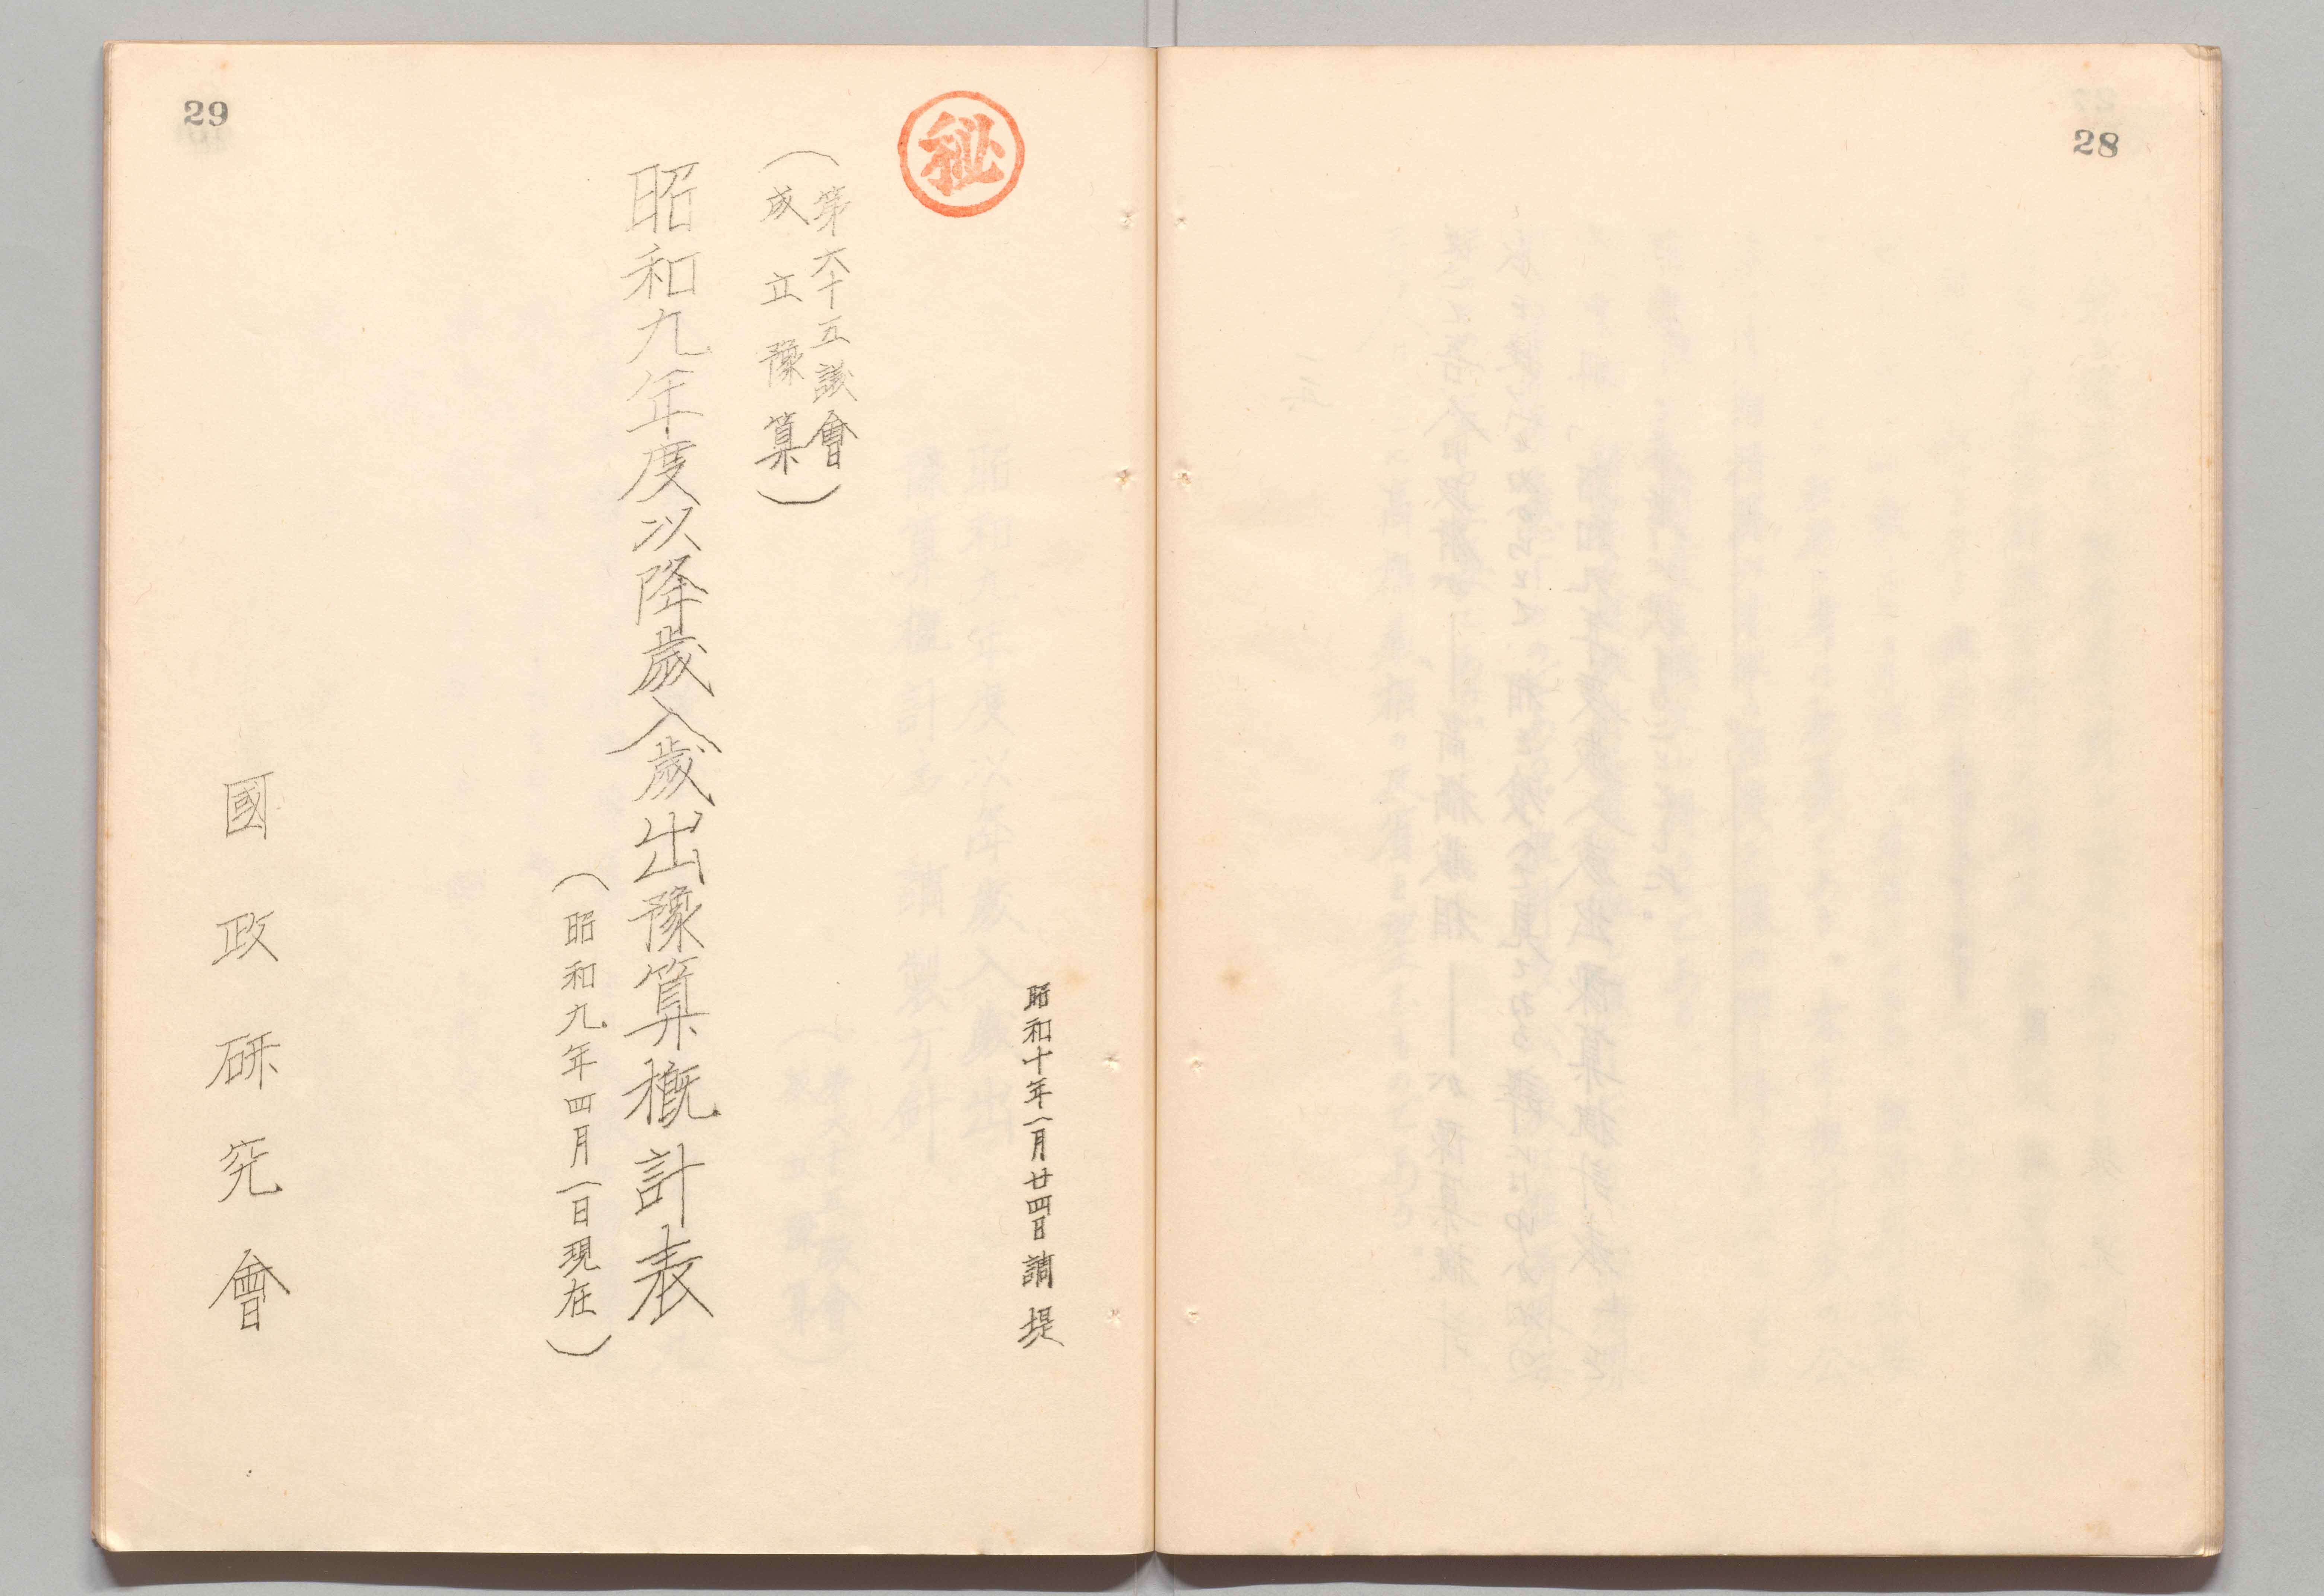 28
29
㊙
昭和十年一月廿四日調提
(第六十五議會
成立豫算)
昭和九年度以降歲入歲出豫算概計表
(昭和九年四月一日現在)
國政研究會